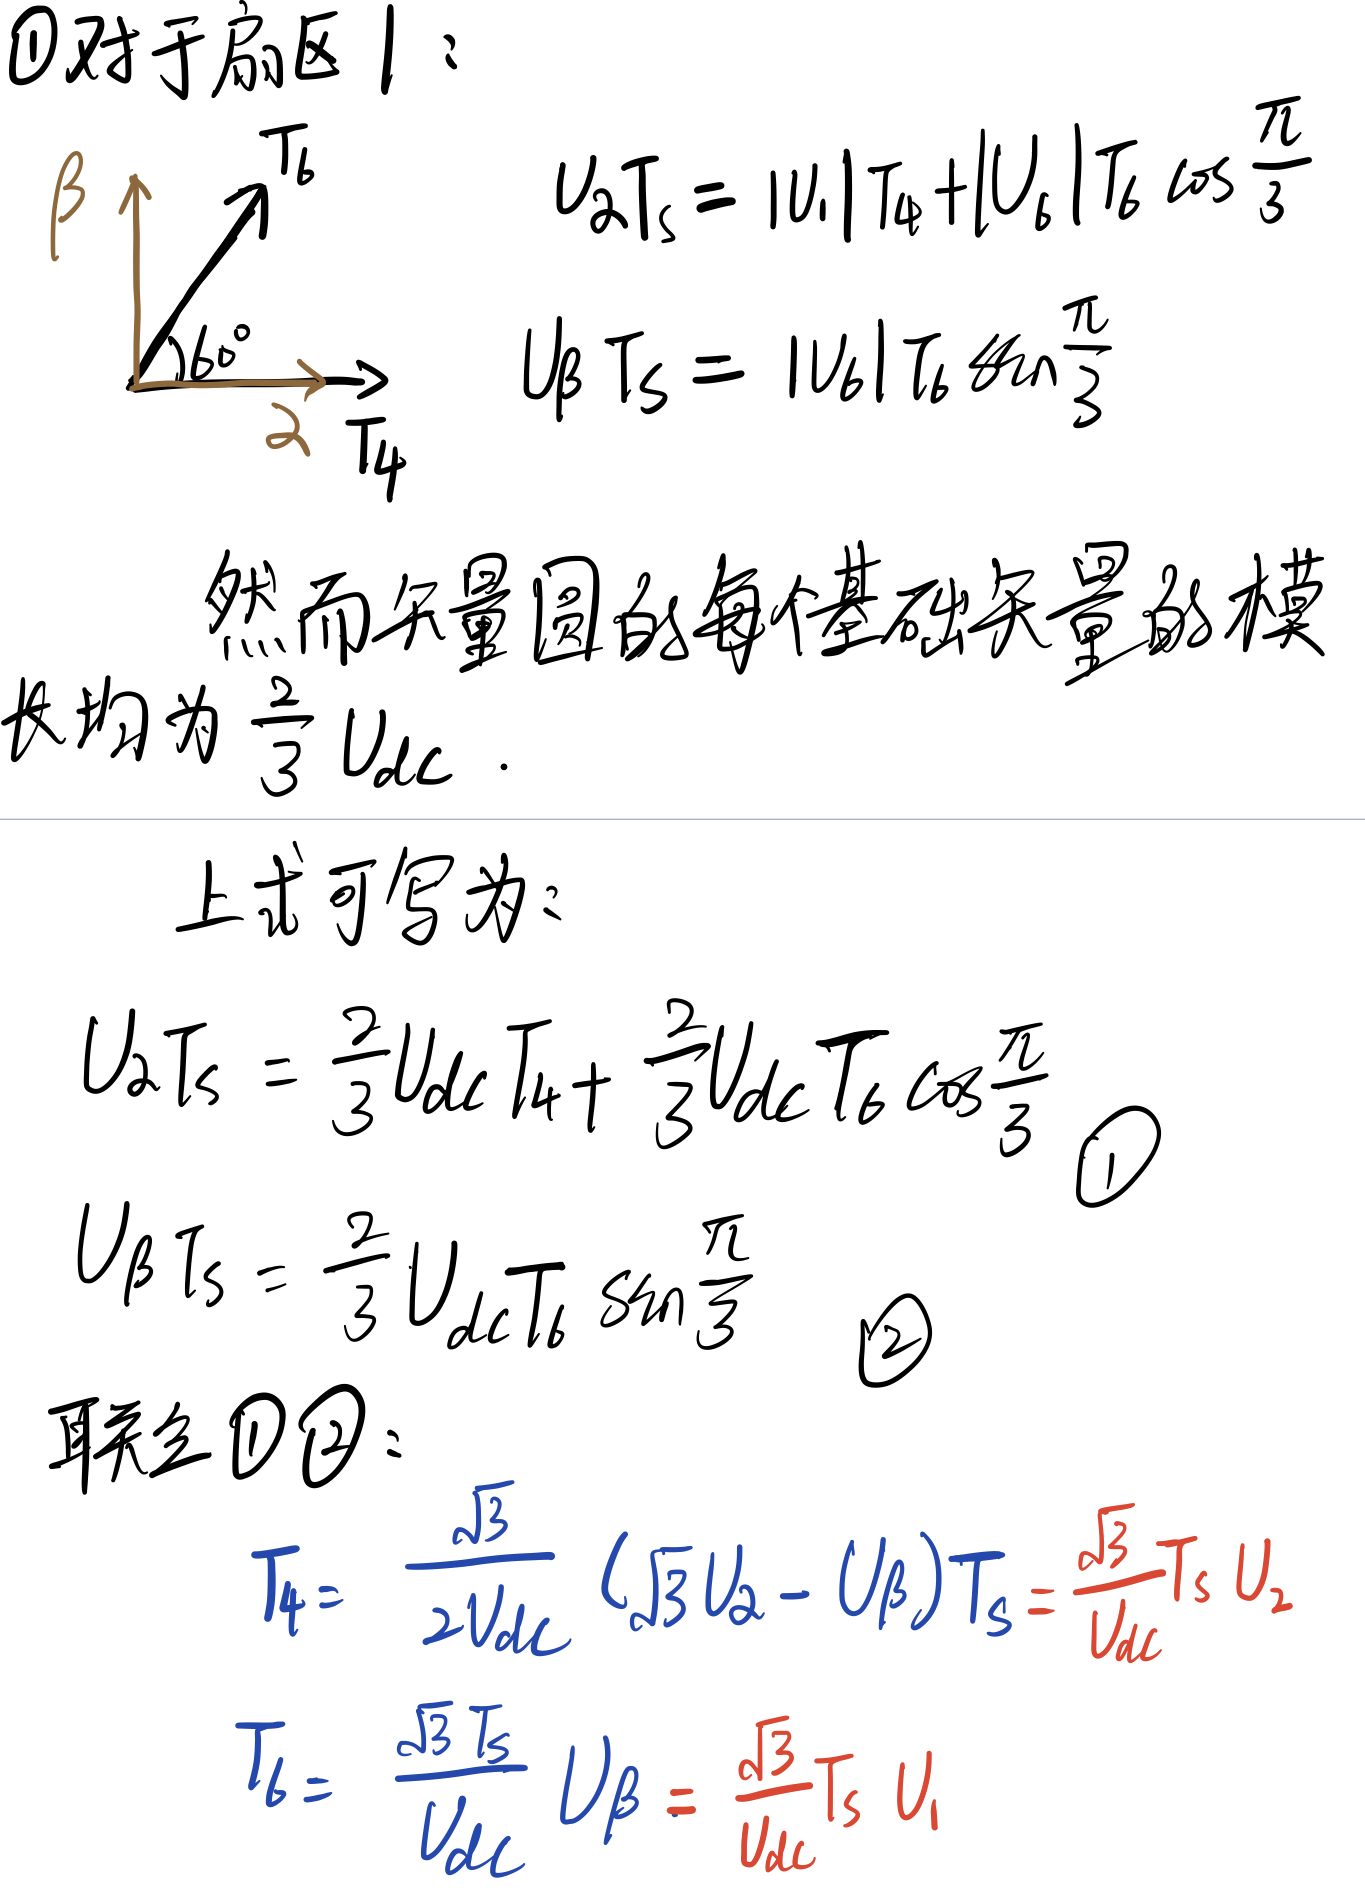 ①对于扇区1：
β
T6
60°
α
T4
UαTs = |U1|T4+|U6|T6 cos π/3
UβTs = |U6|T6 sin π/3
然而矢量圆的每个基础矢量的模
长均为 2/3 Udc .
上式可写为：
UαTs = 2/3 Udc T4 + 2/3 Udc T6 cos π/3 ①
UβTs = 2/3 Udc T6 sin π/3 ②
联立①②：
T4 = √3/2Udc (√3Uα - Uβ)Ts = √3/Udc Ts U2
T6 = √3Ts/Udc Uβ = √3/Udc Ts U1